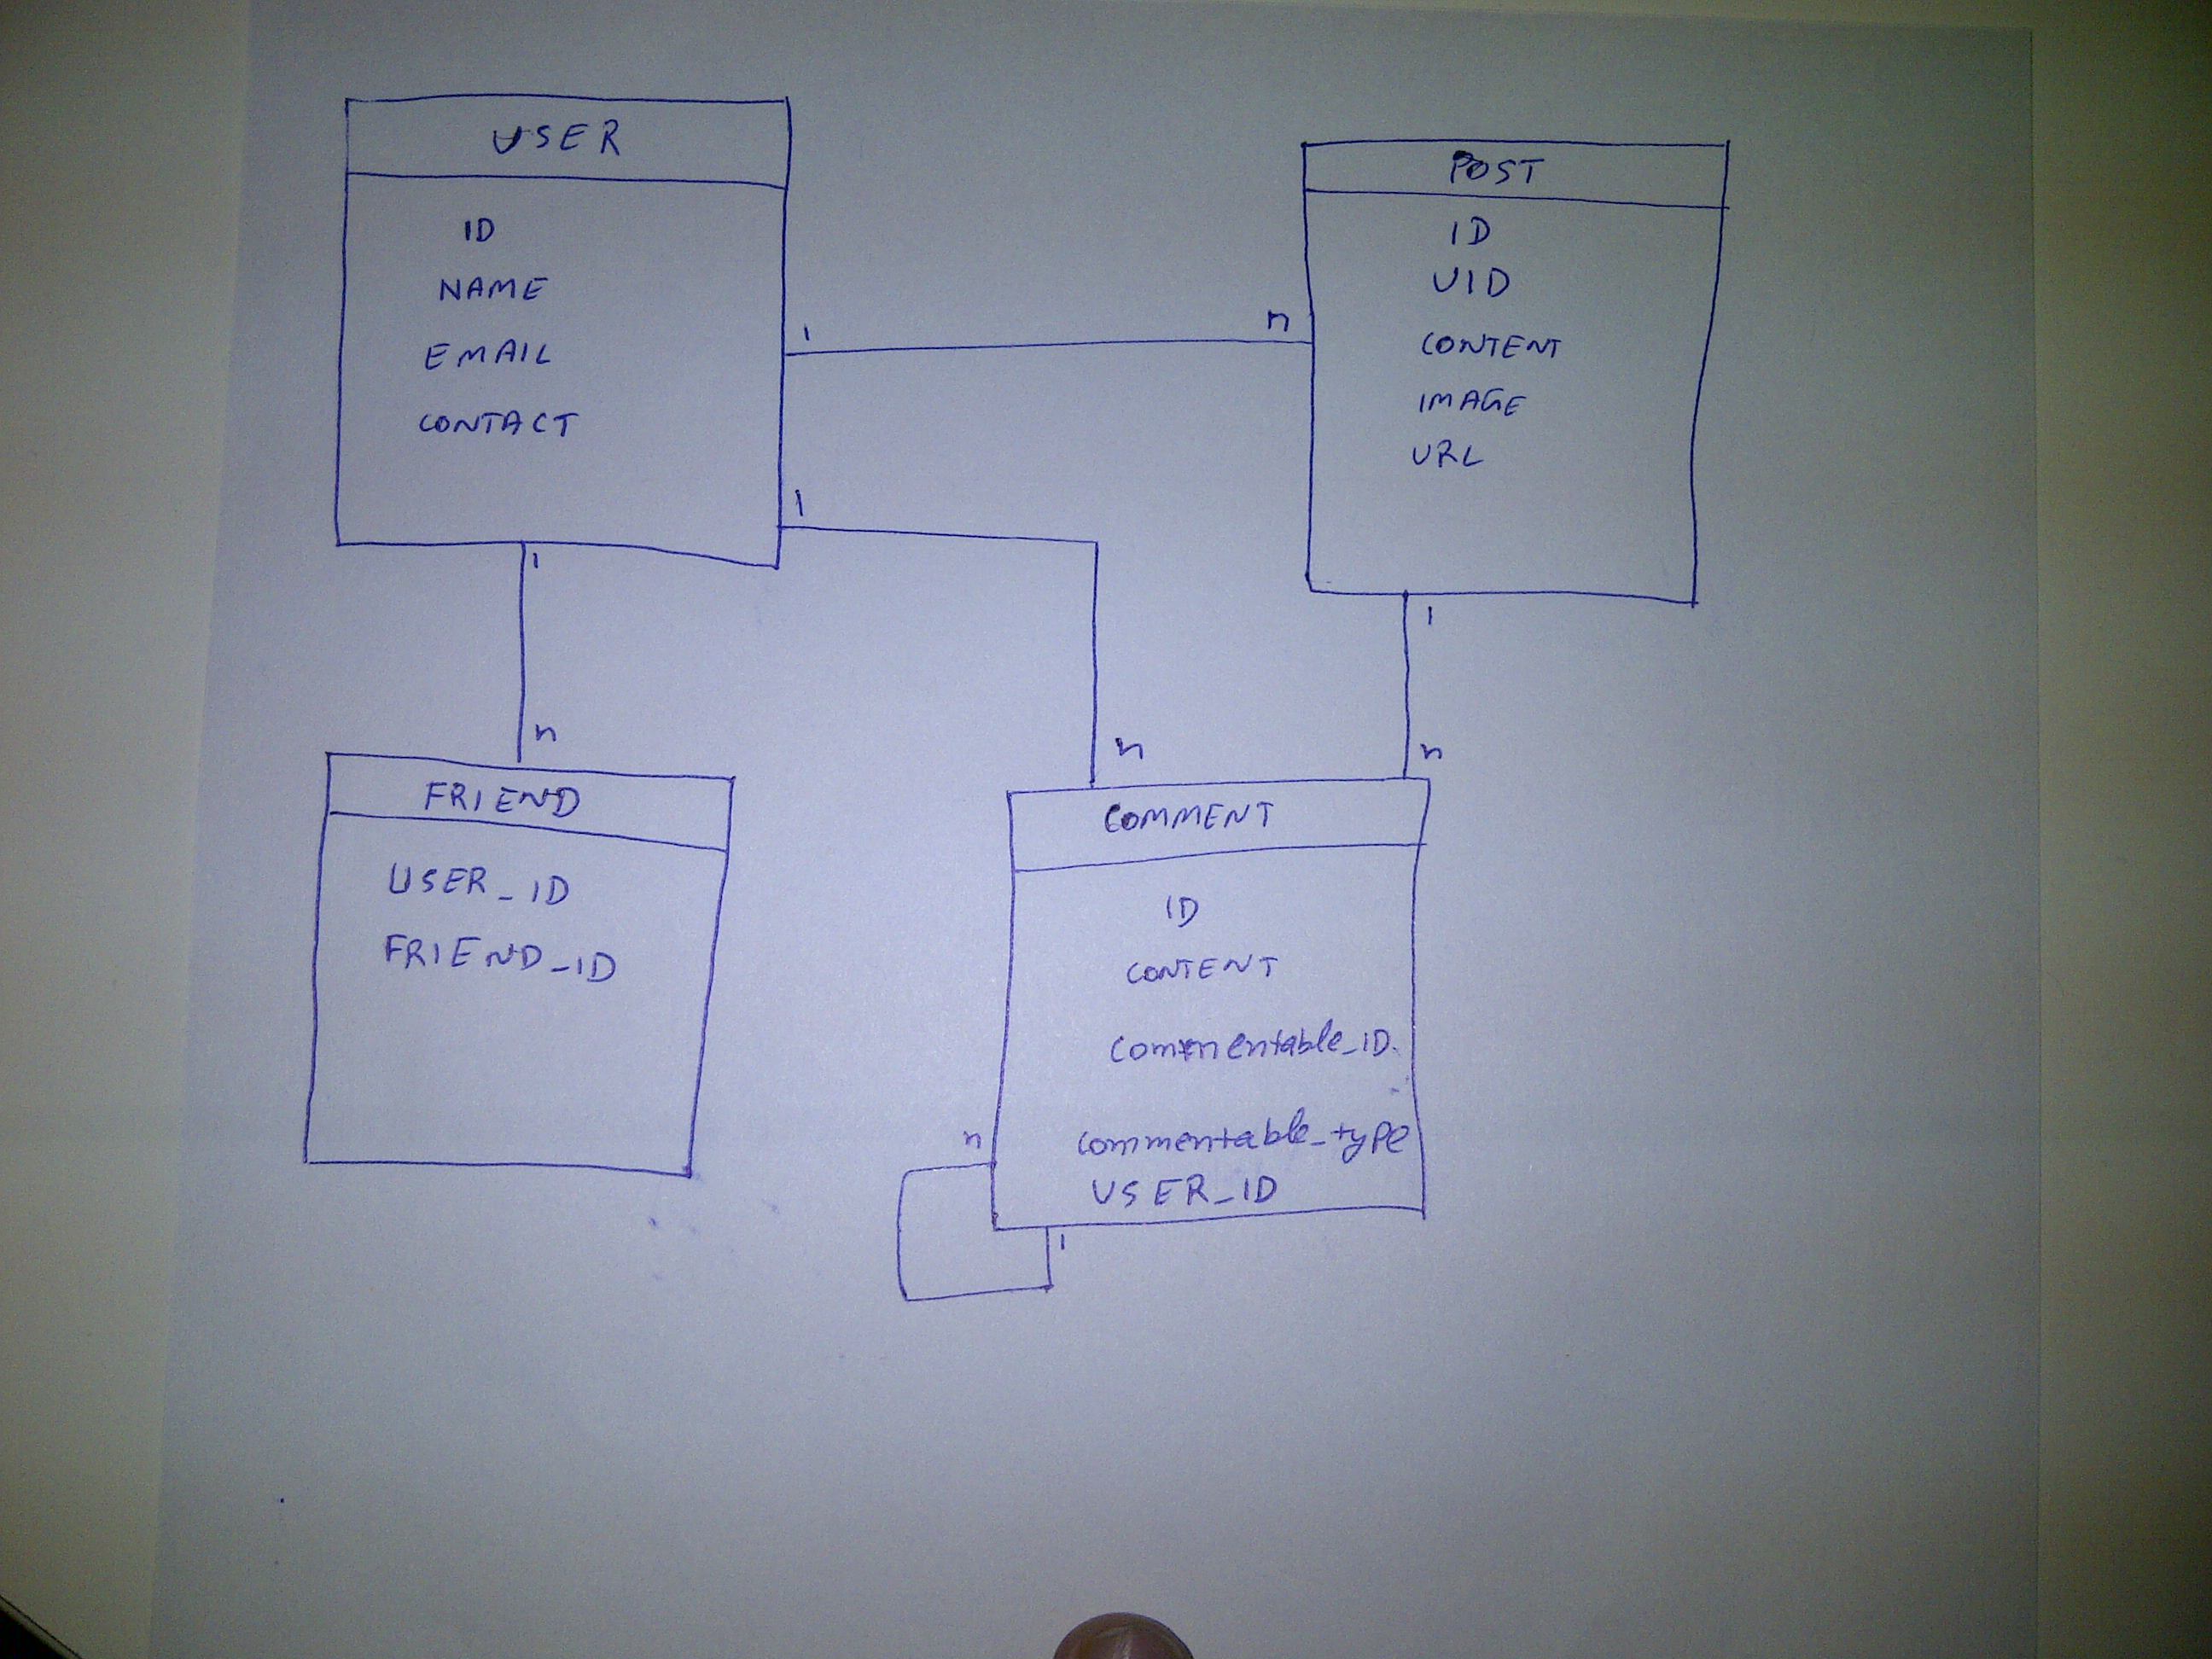 USER
ID
NAME
EMAIL
CONTACT
1
n
1
1
POST
ID
UID
CONTENT
IMAGE
URL
1
n
FRIEND
USER_ID
FRIEND_ID
n
n
COMMENT
ID
CONTENT
Commentable_ID
commentable_type
USER_ID
n
1